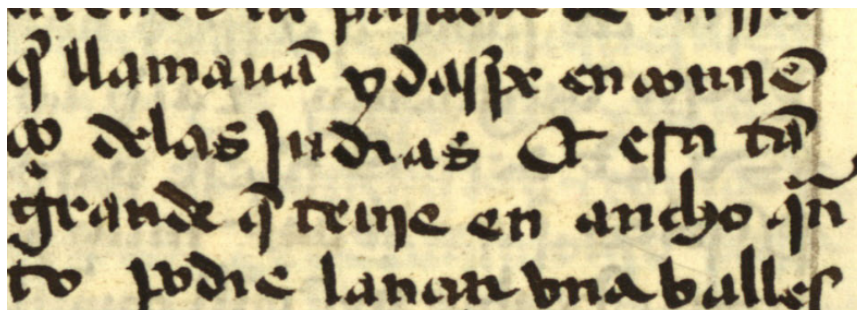 q̃ llamauã ydaspe en comiẽ
co delas Jndias Et era tã
grande q̃ tenie en ancho qũ
to podie lançar vna balles